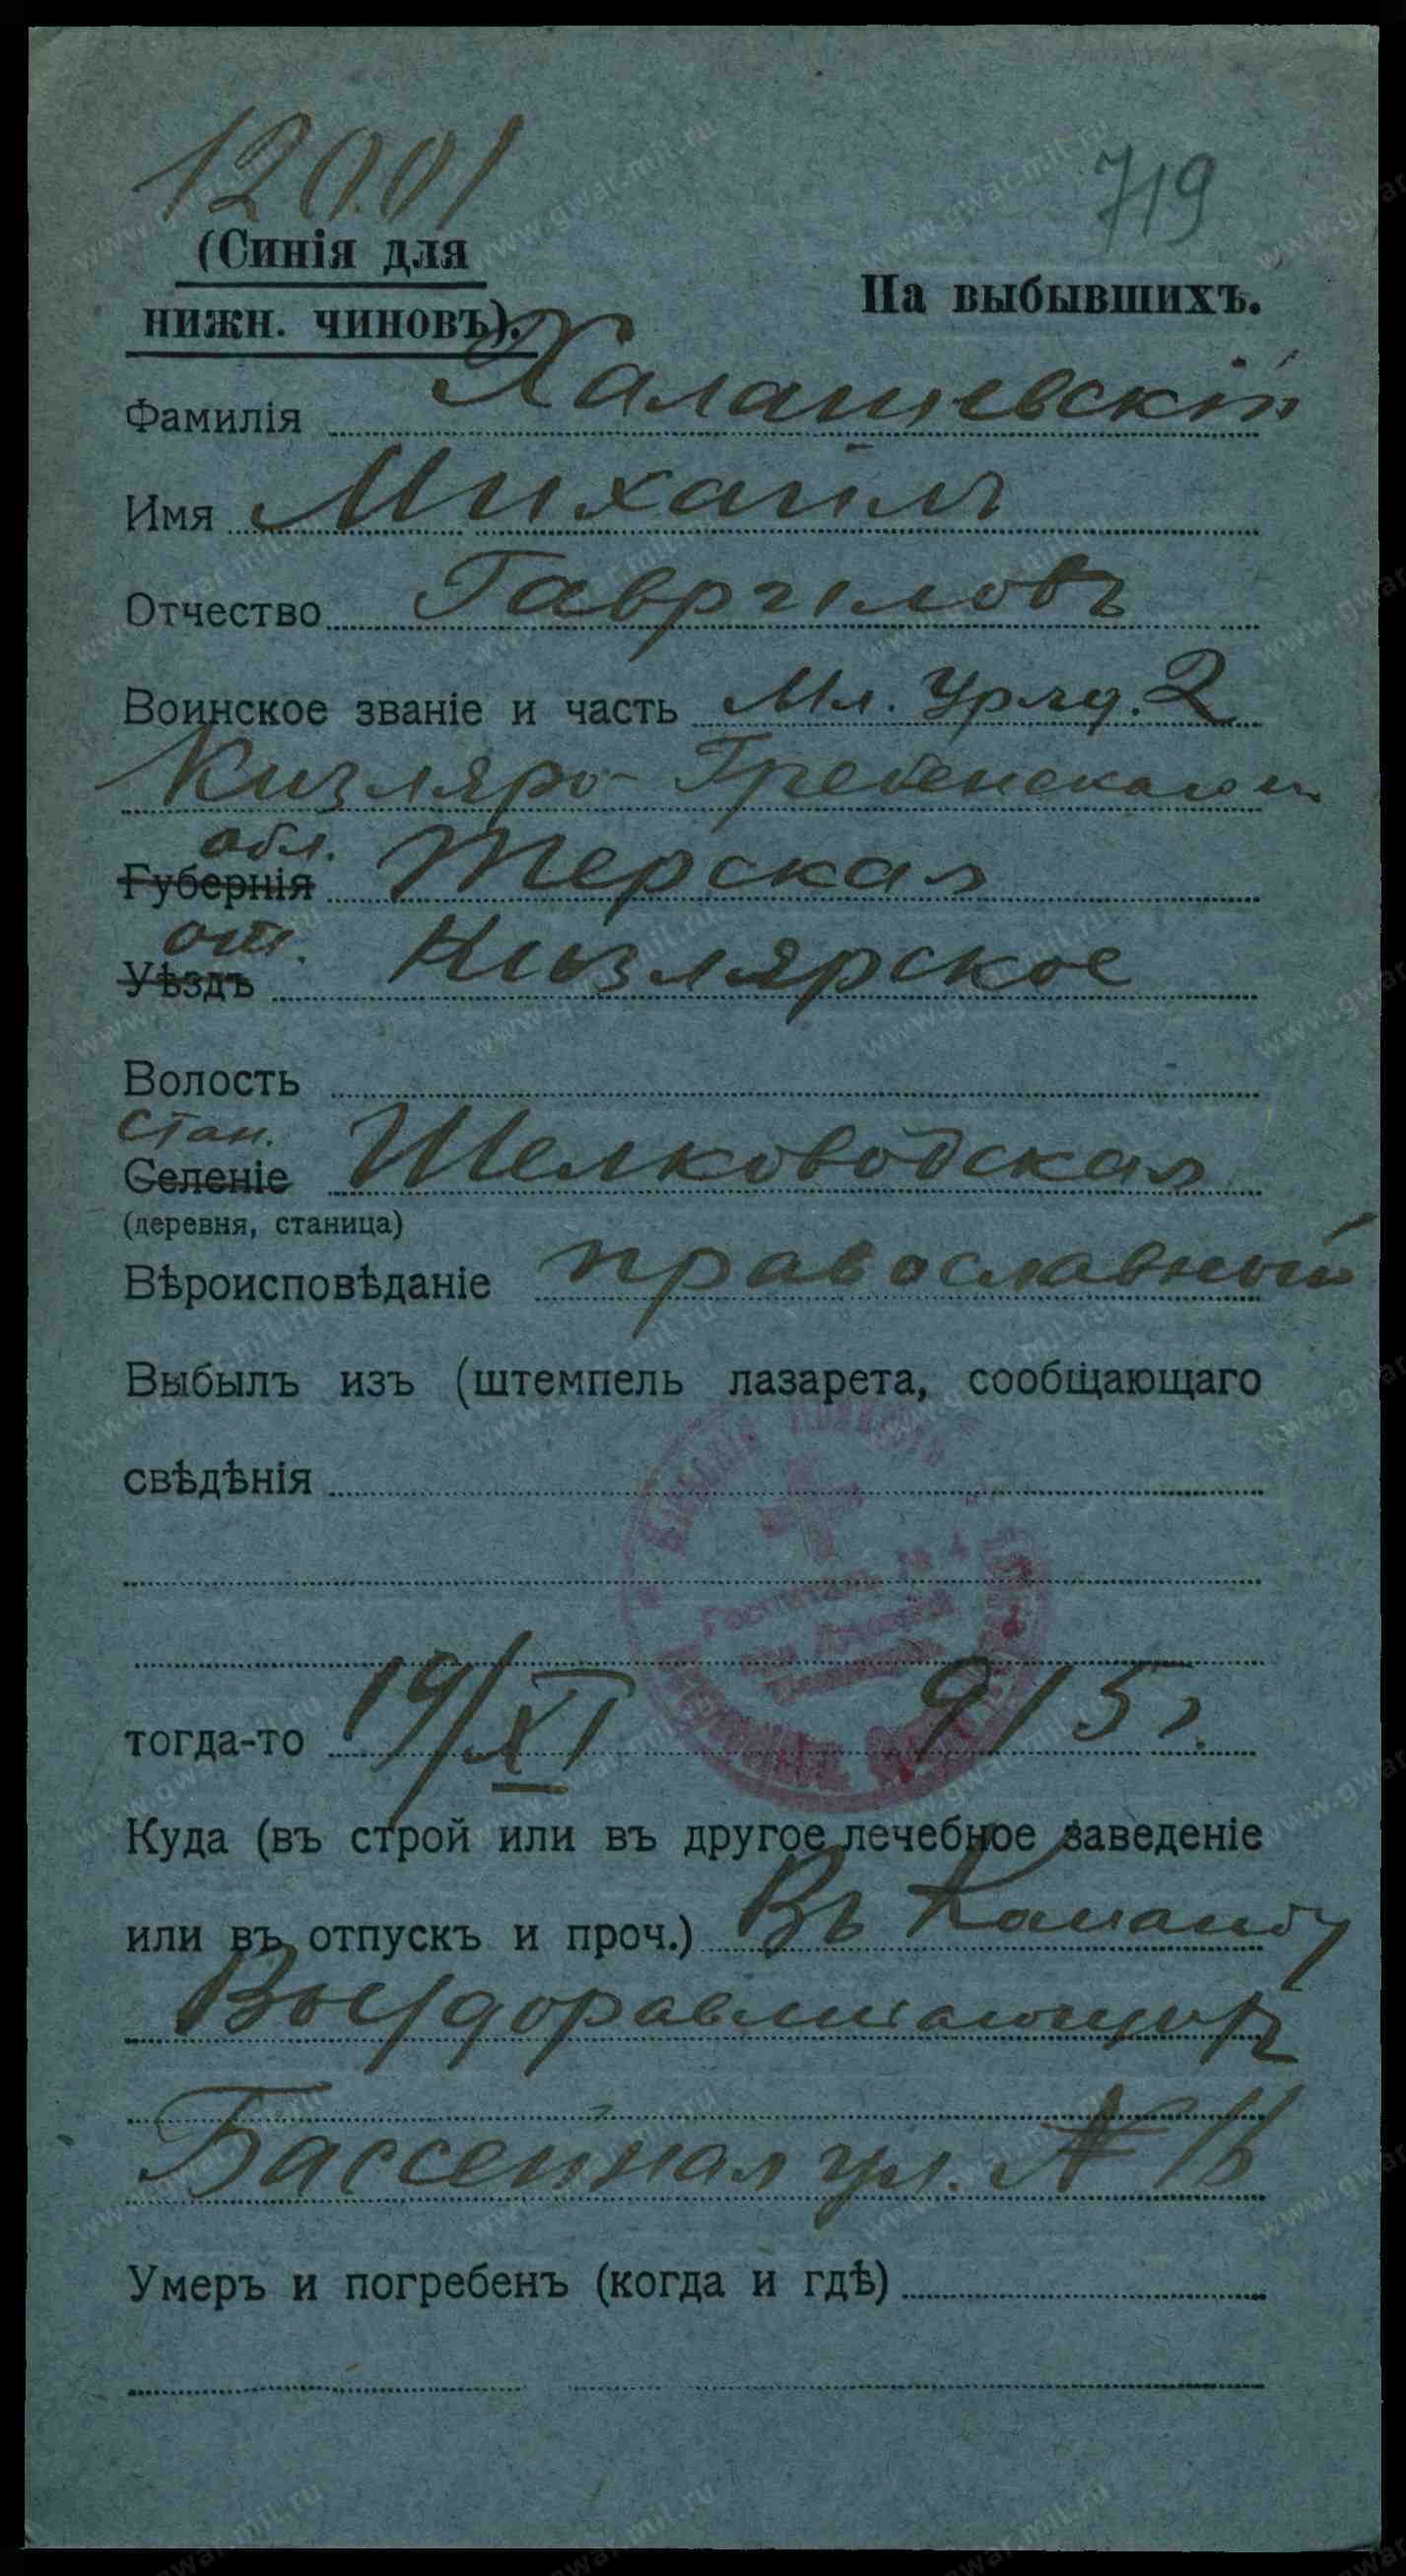 12001
719
(Синія для
нижн. чиновъ).
На выбывшихъ.
Фамилія Халашевскій
Имя Михаилъ
Отчество Гавриловъ
Воинское званіе и часть Мл. Уряд. 2
Кизляро-Гребенскаго п.
обл.
Губернія Терская
отд.
Уѣздъ Кизлярское
Волость
Стан.
Селеніе Шелководская
(деревня, станица)
Вѣроисповѣданіе православный
Выбылъ изъ (штемпель лазарета, сообщающаго
свѣдѣнія
Госпиталь № 4
тогда-то 19/XI 915 г.
Куда (въ строй или въ другое лечебное заведеніе
или въ отпускъ и проч.) Въ Команду
Выздоравливающихъ
Бассейная ул. №
Умеръ и погребенъ (когда и гдѣ)
www.gwar.mil.ru